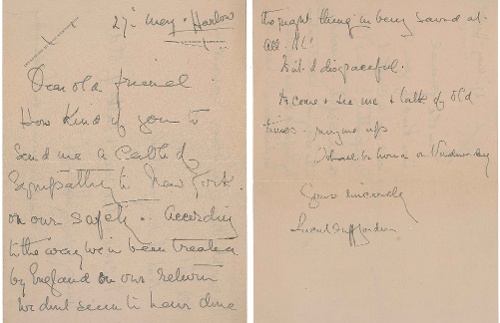 27th May - Harlow
Dear old friend.
How kind of you to
send me a cable of
sympathy to New York
on our safety. According
to the way we've been treated
by England on our return
we didn't seem to have done
the right thing in being saved at
all. !!!!
Isn't it disgraceful.
Do come & see me & talk of old
times. ring me up
or
Yours sincerely
Lucile Duff Gordon